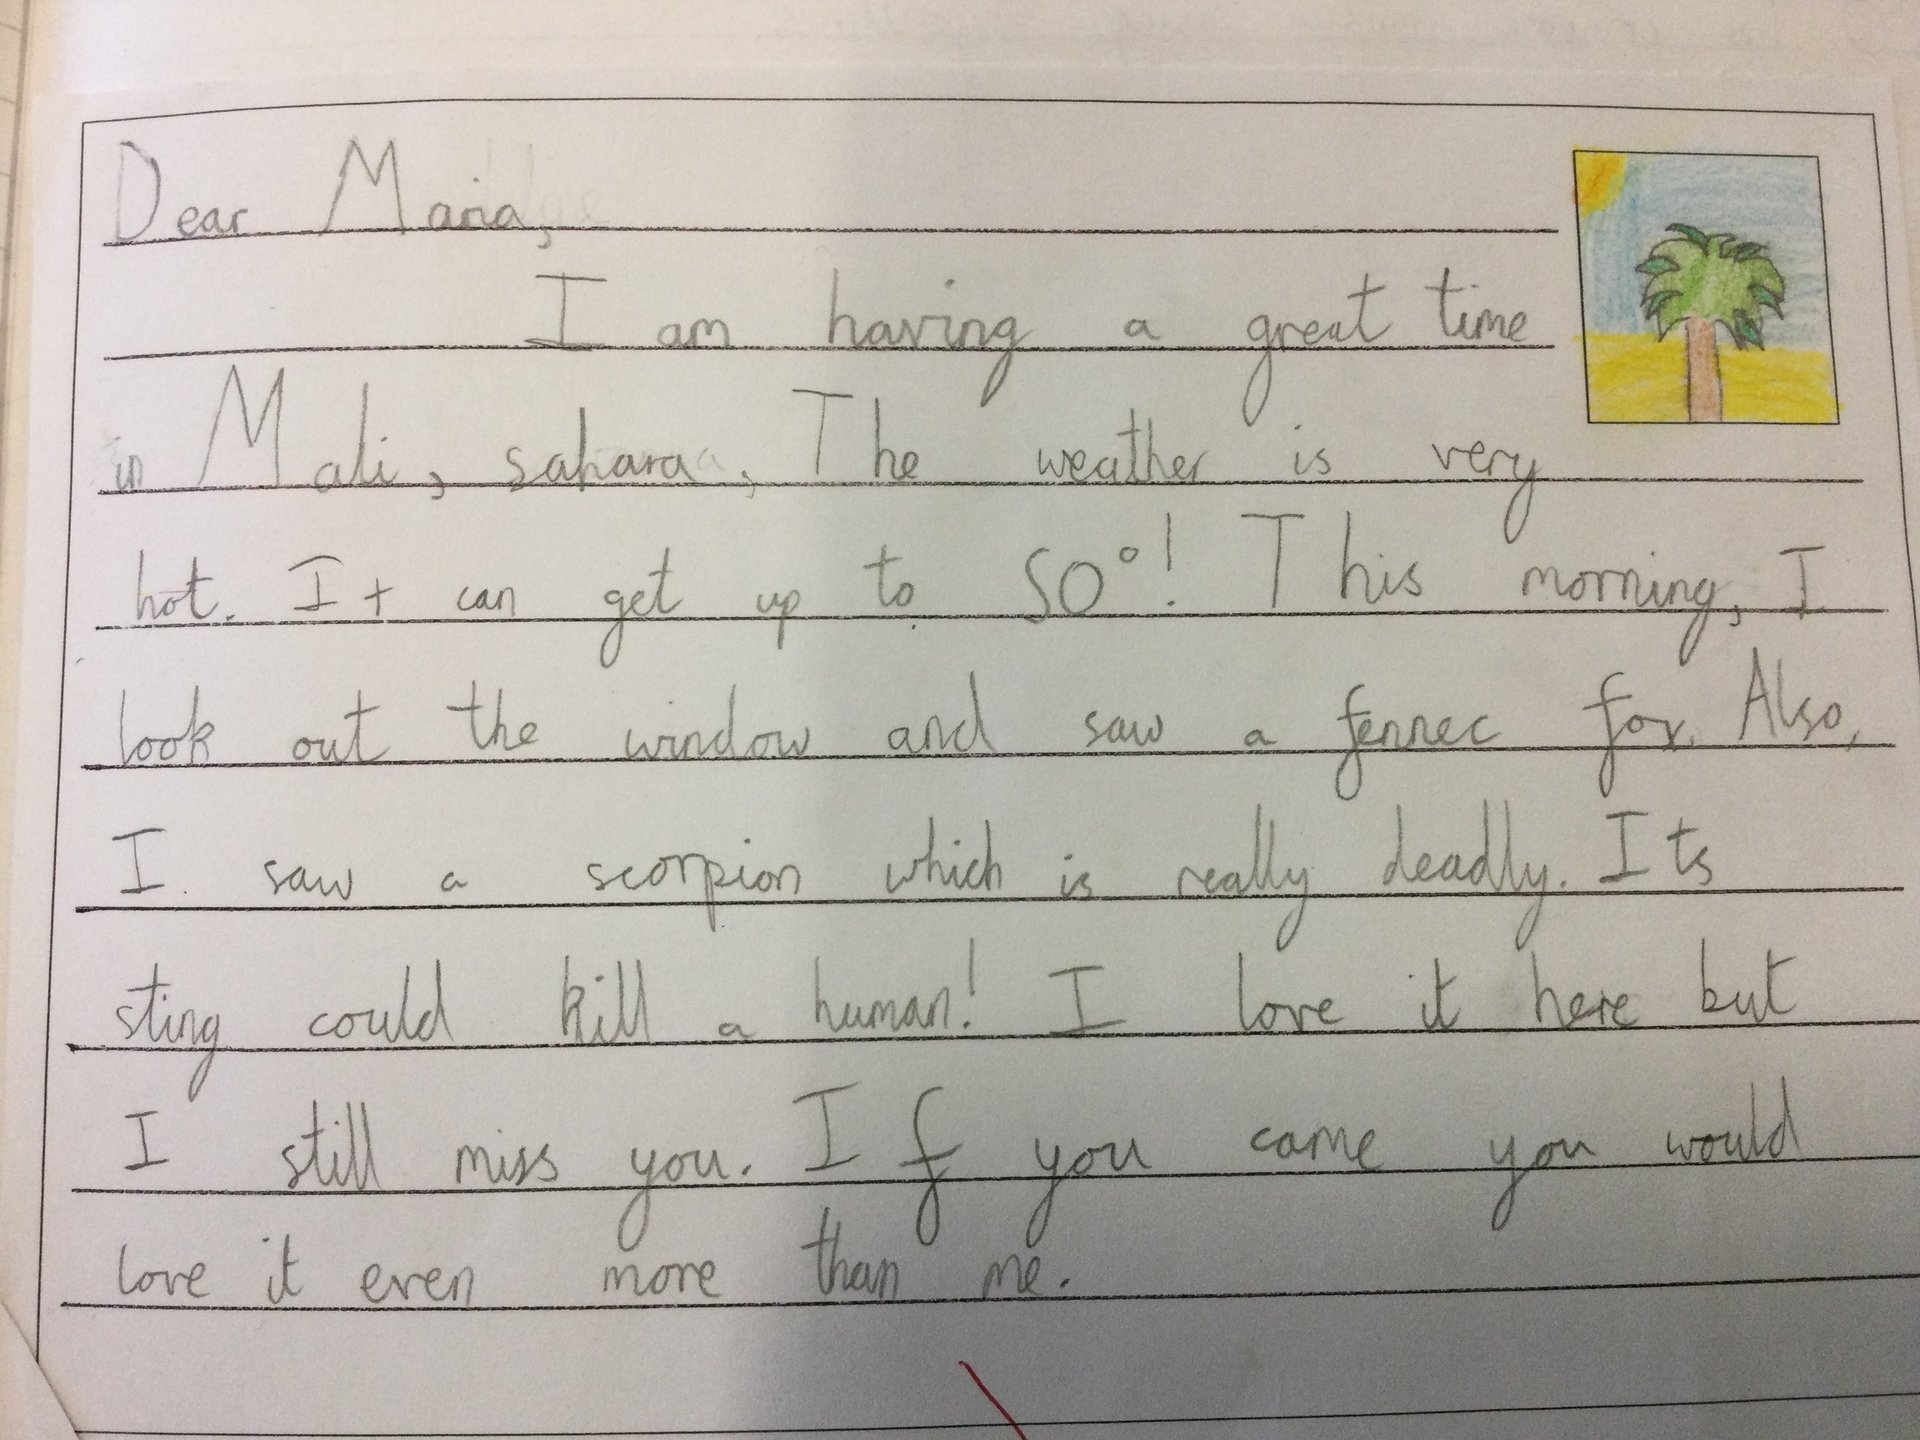 Dear Maria,
I am having a great time
in Mali, sahara, The weather is very
hot. It can get up to 50°! This morning, I
look out the window and saw a fennec fox. Also,
I saw a scorpion which is really deadly. Its
sting could kill a human! I love it here but
I still miss you. If you came you would
love it even more than me.